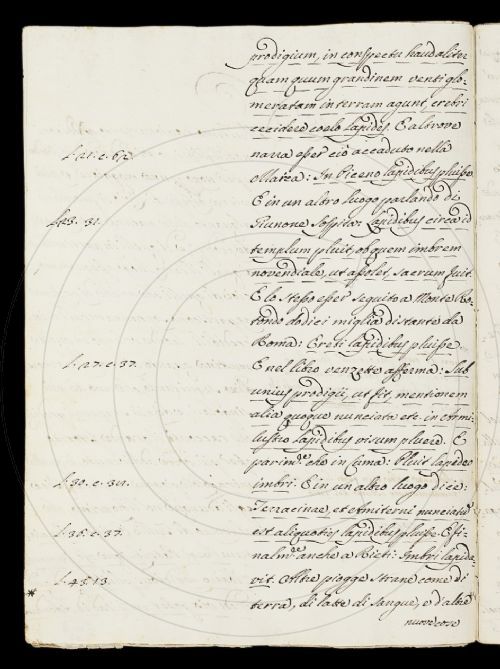 prodigium, in conspectu haud aliter
quam quum grandinem venti glo-
meratam in terram agunt, crebri
cecidere coelo lapides. E altrove
L. 21. c. 62.
narra esser ciò accaduto nella
Marca: In Piceno lapidibus pluisse.
E in un altro luogo parlando di
L. 23. 31.
Giunone Sospita: lapidibus circa id
templum pluit, ob quem imbrem
novendiale, ut assolet, sacrum fuit.
E lo stesso esser seguito a Monte Ro-
tondo dodici miglia distante da
Roma: Ereti lapidibus pluisse.
L. 27. c. 37.
E nel libro afferma: Sub
unius prodigii, ut fit, mentionem
alia quoque nunciata etc. in Armi-
lustro lapidibus visum pluere. E
parim.te che in Cuma: Pluit lapideo
L. 30. c. 34.
imbri. E in un altro luogo dice:
Terracinae, et Amiterni nunciatũ
L. 35. c. 37.
est aliquoties lapidibus pluisse. E fi-
nalm.te anche a Rieti: Imbri lapida-
L. 43. 13.
vit. Altre piogge strane come di
*
terra, di latte di sangue, e d'altre
nuove cose